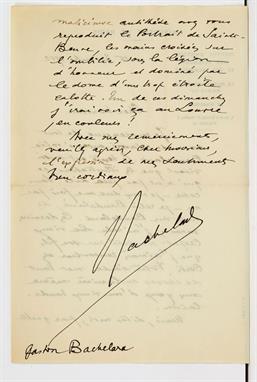 malicieuse antithèse avez vous
reproduit le Portrait de Sainte-
Beuve, les mains croisées sur
l'ombilic, sous la légion
d'honneur et dominé par
le dôme d'une trop étroite
calotte. Un de ces dimanches
j'irai voir ça au Louvre
en couleurs !
Avec mes remerciements,
veuillez agréer, cher Monsieur,
l'expression de mes sentiments
bien cordiaux
Bachelard
Gaston Bachelard